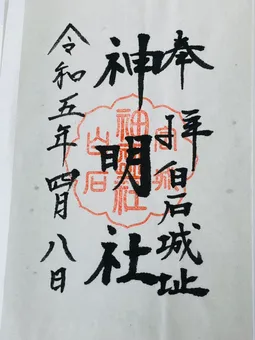 奉拝白石城址
神明社
令和五年四月八日
神明社